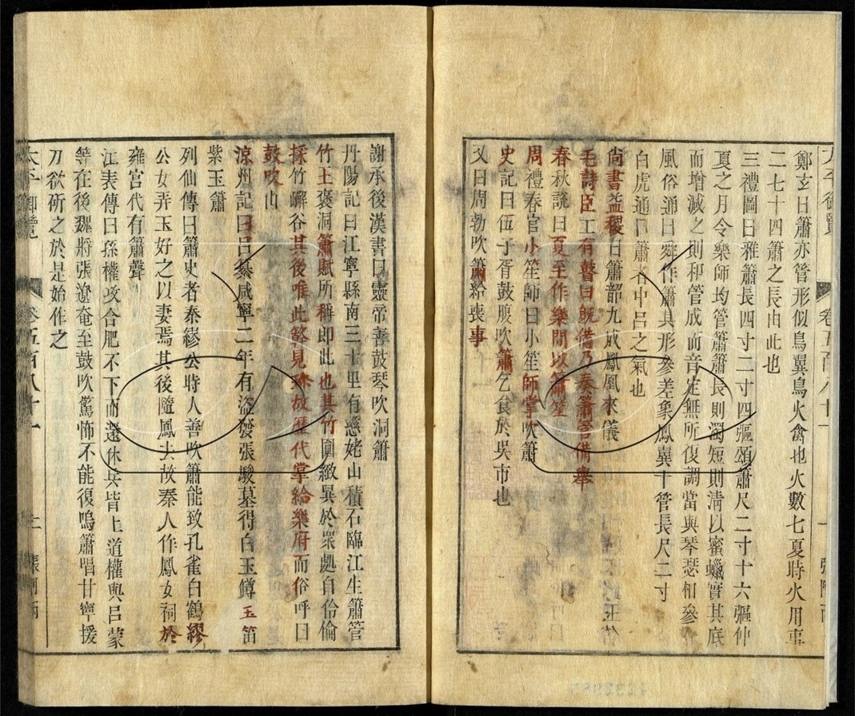 鄭玄曰簫亦管形似鳥翼鳥火禽也火數七夏時火用事
二七十四簫之長由此也
三禮圖曰雅簫長四寸二寸四彄頌簫尺二寸十六彄仲
夏之月令樂師均管簫簫長則濁短則清以蜜蠟實其底
而增減之則和管成而音定無所復調當與琴瑟相參
風俗通曰舜作簫其形參差象鳳翼十管長尺二寸
白虎通曰簫者中呂之氣也
尚書益稷曰簫韶九成鳳凰來儀
毛詩臣工有瞽曰旣備乃奏簫管備舉
春秋說曰夏至作樂間以簫笙
周禮春官小笙師曰小笙師掌吹簫
史記曰伍子胥鼓腹吹簫乞食於吳市也
又曰周勃吹簫給喪事
謝承後漢書曰靈帝善鼓琴吹洞簫
丹陽記曰江寧縣南三十里有慈姥山積石臨江生簫管
竹王褒洞簫賦所稱即此也其竹圓緻異於衆處自伶倫
採竹嶰谷其後唯此𥳑見珍故歷代掌給樂府而俗呼曰
鼓吹山
涼州記曰呂纂咸寧二年有盜發張駿墓得白玉罇玉笛
紫玉簫
列仙傳曰簫史者秦繆公時人善吹簫能致孔雀白鶴繆
公女弄玉好之以妻焉其後隨鳳去故秦人作鳳女祠於
雍宮代有簫聲
江表傳曰孫權攻合肥不下而還休兵皆上道權與呂蒙
等在後魏將張遼奄至鼓吹驚怖不能復鳴簫唱甘寧援
刀欲斫之於是始作之